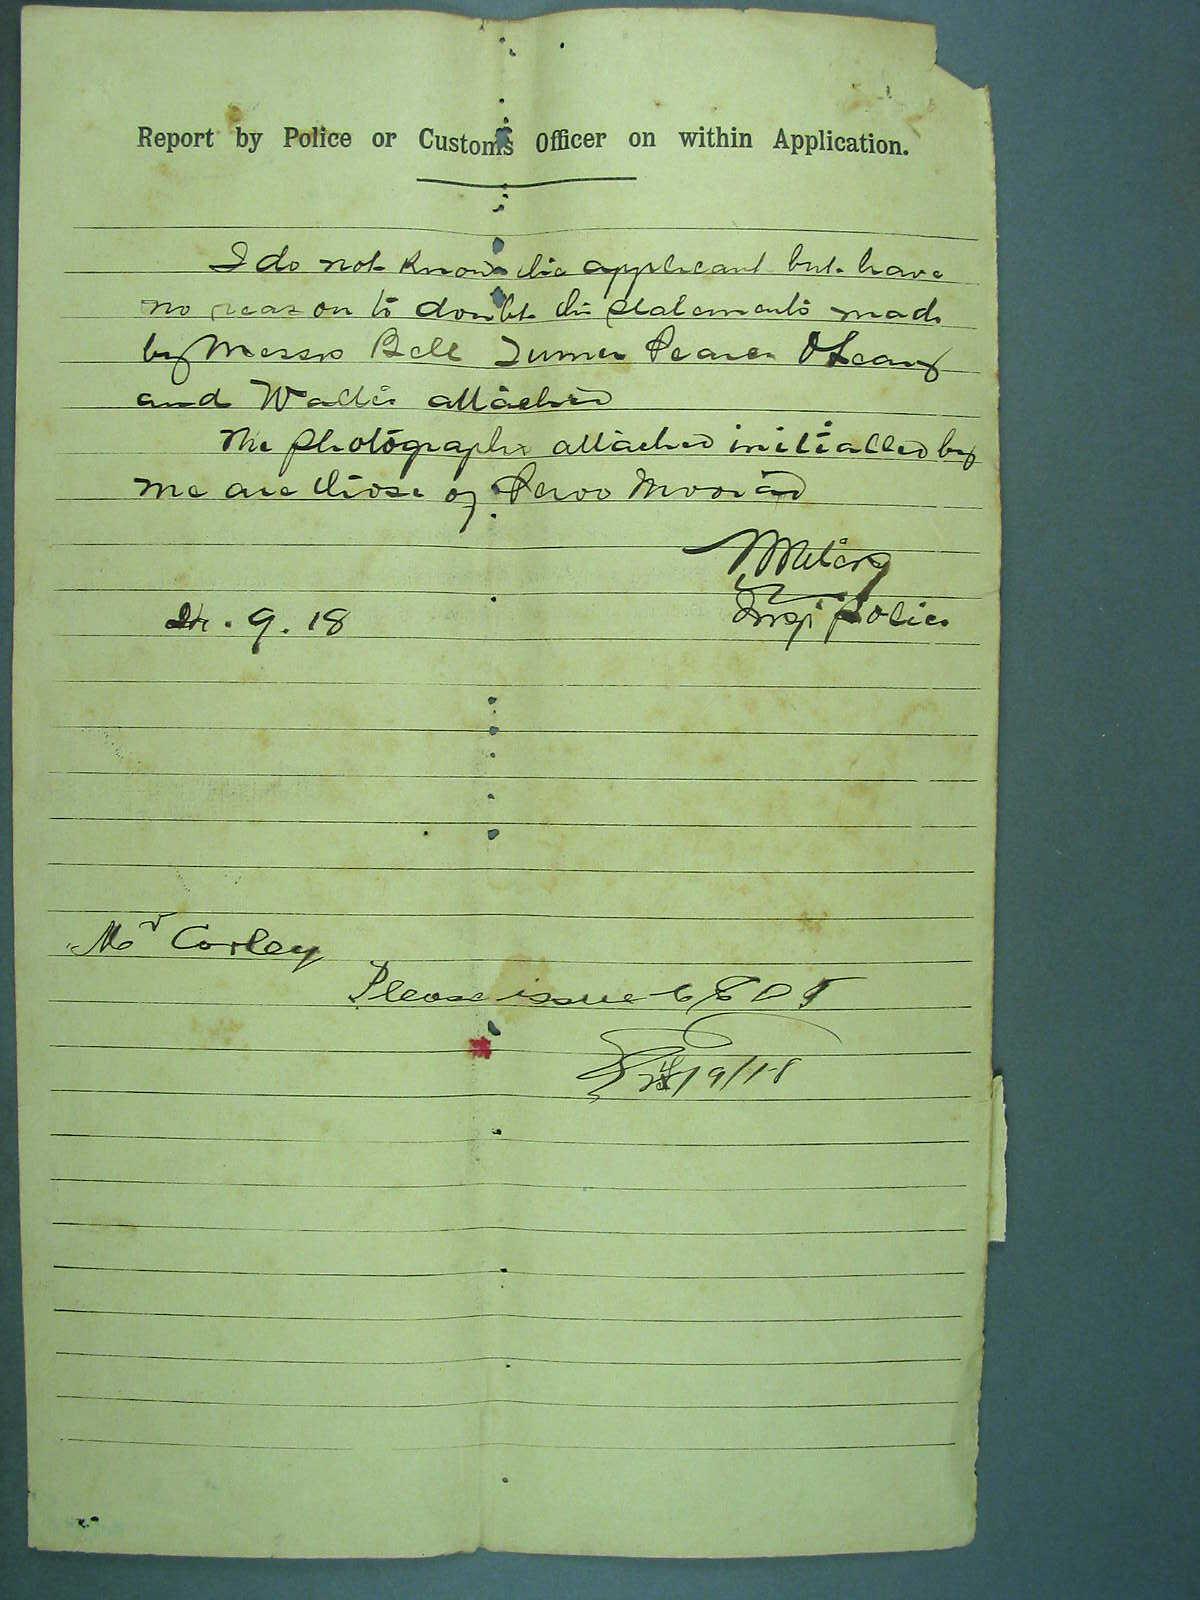 Report by Police or Customs Officer on within Application.
I do not know the applicant but have
no reason to doubt the statements made
by Messrs Bell Turner Pearce O'Leary
and Walter attached
The photographs attached initialled by
me are those of
Insp Police
24.9.18
Mr Corley
Please issue C E D T
9/18